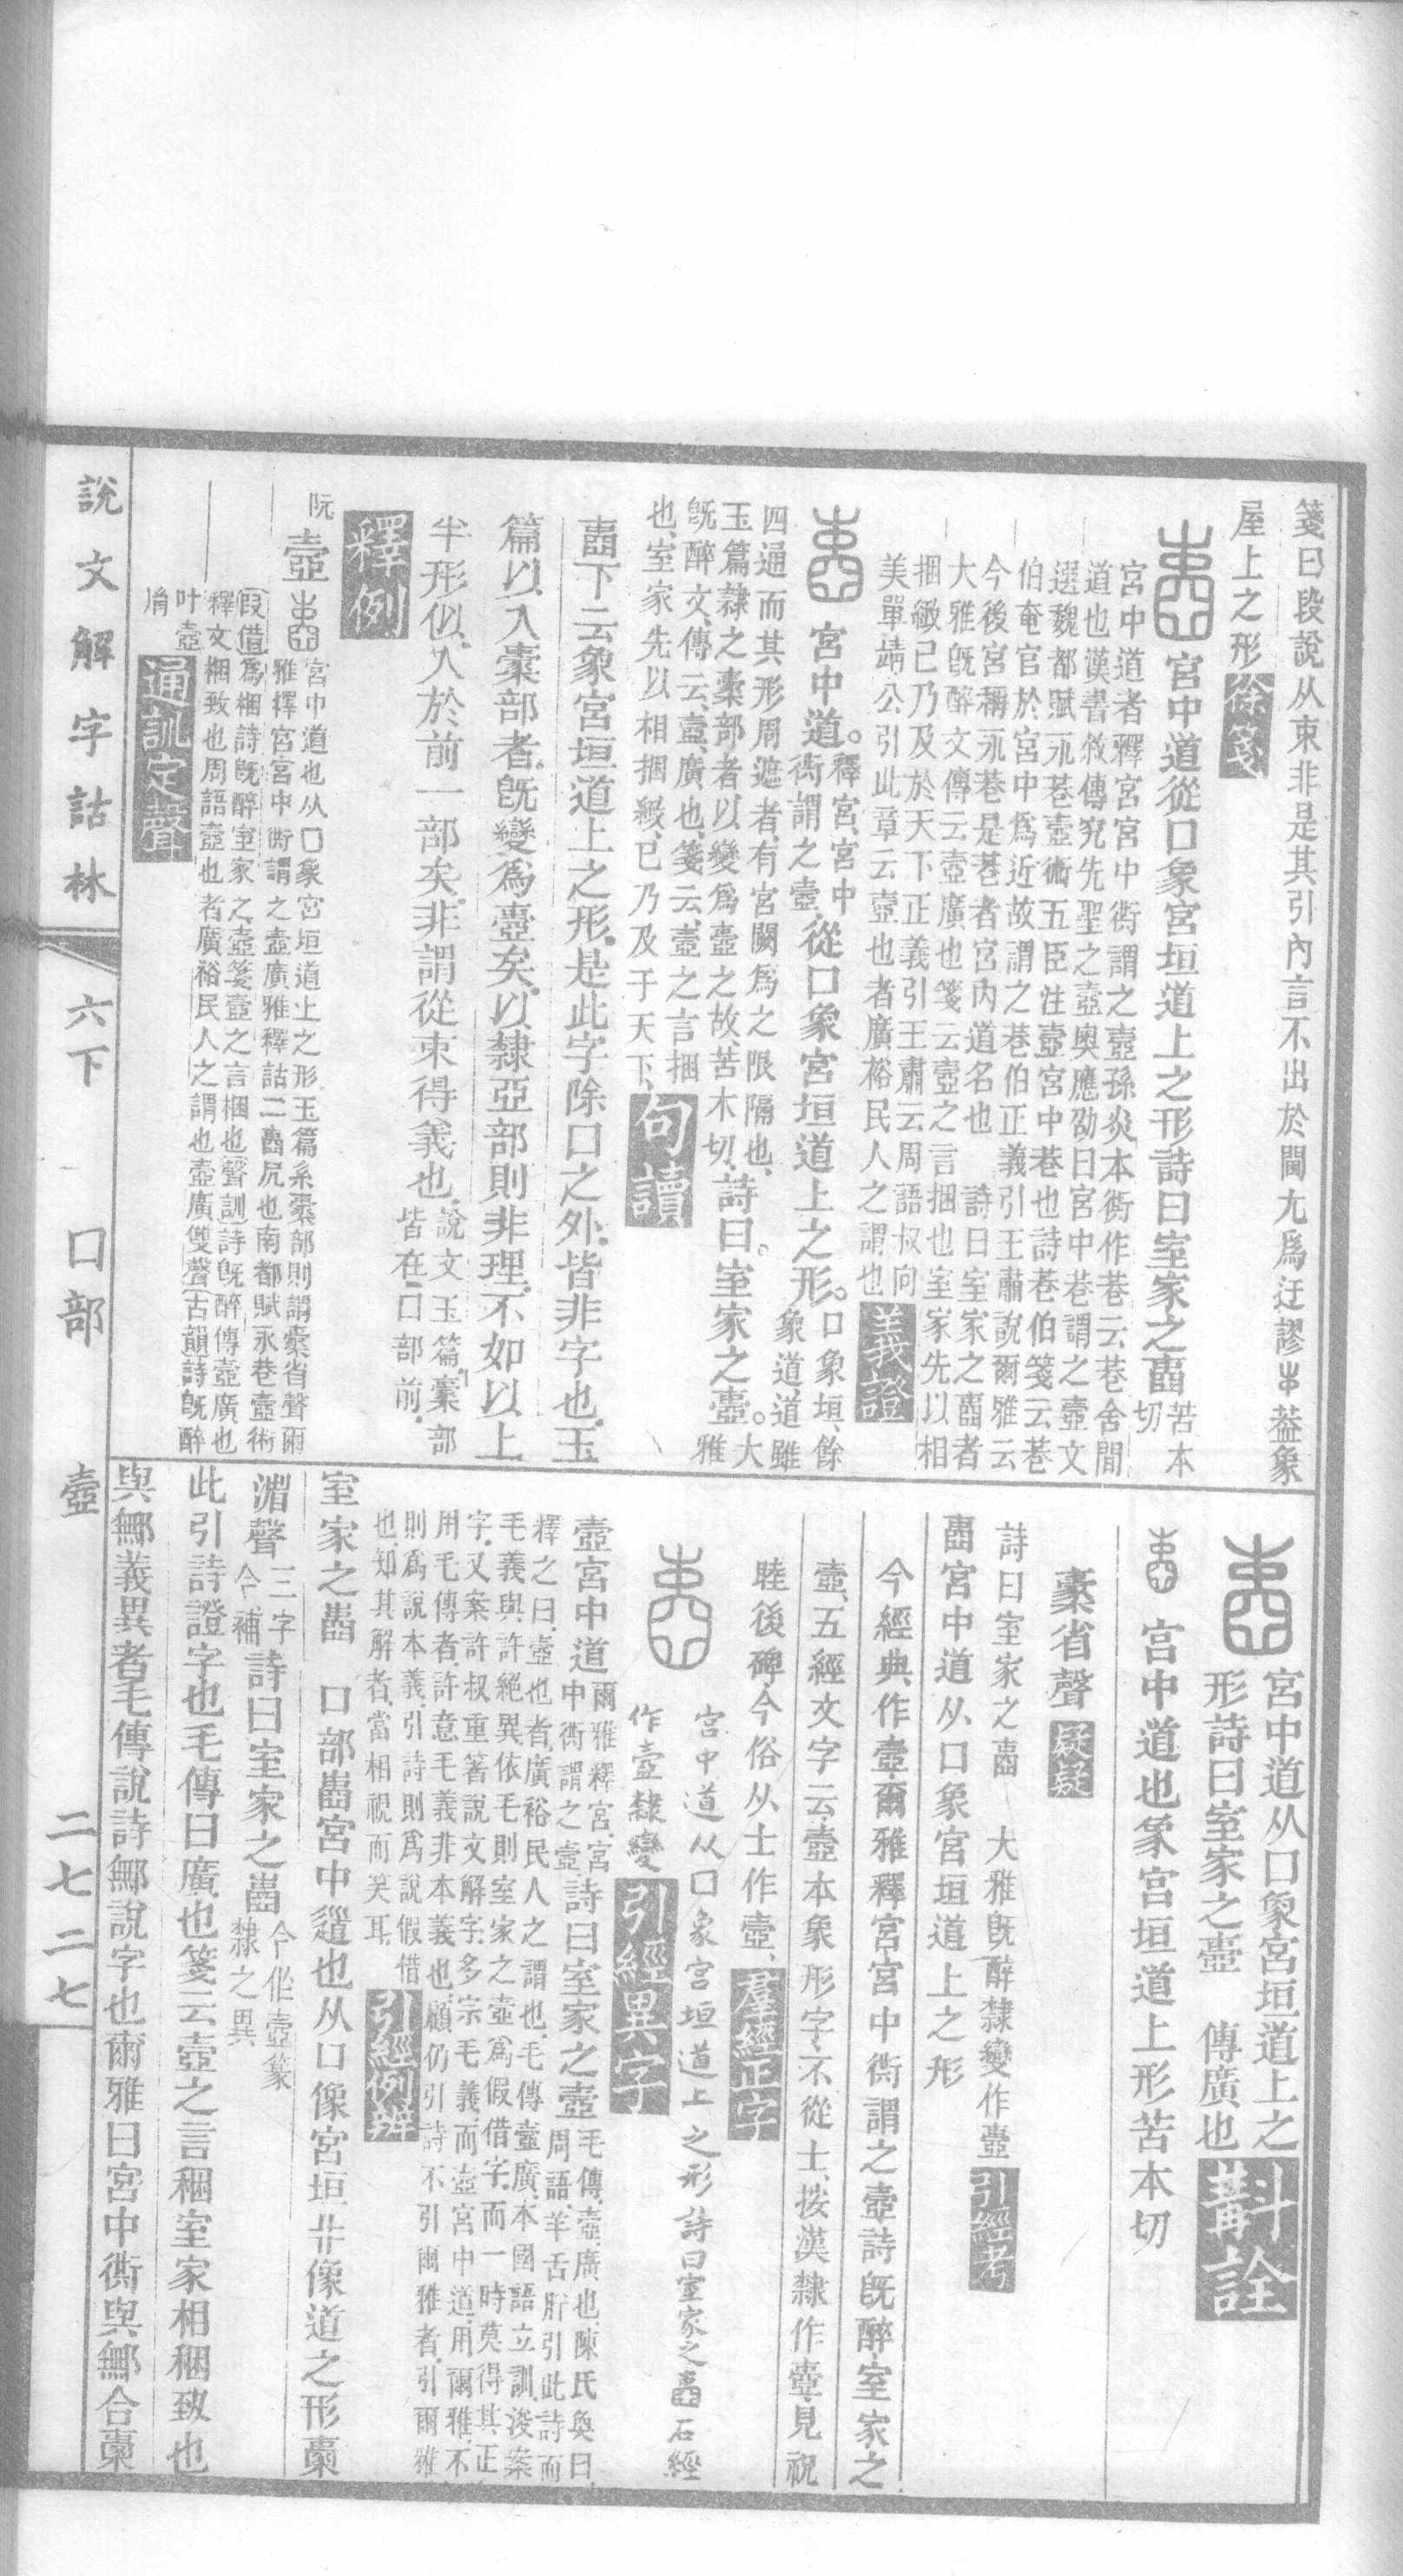 箋曰段說从束非是其引內言不出於閫尤爲迂謬蓋象
屋上之形徐箋
宮中道從囗象宮垣道上之形詩曰室家之𡈴苦本切
宮中道者釋宮宮中衖謂之壼孫炎本衖作巷云巷舍閒
道也漢書敘傳究先聖之壼奧應劭曰宮中巷謂之壼文
選魏都賦永巷壼術五臣注壼宮中巷也詩巷伯箋云巷
伯奄官於宮中爲近故謂之巷伯正義引王肅說爾雅云
今後宮稱永巷是巷者宮內道名也 詩曰室家之𡈴者
大雅旣醉文傳云壼廣也箋云壼之言捆也室家先以相
捆緻已乃及於天下正義引王肅云周語叔向
美單靖公引此章云壼也者廣裕民人之謂也義證
宮中道。釋宮宮中衖謂之壼、從囗象宮垣道上之形。囗象垣、餘象道、道雖
四通而其形周遮者、有宮闕爲之限隔也、
玉篇隸之㯻部者、以變爲壼之故、苦本切、詩曰。室家之壼。大雅
旣醉文、傳云、壼、廣也、箋云、壼之言捆
也、室家先以相捆緻、已乃及于天下、句讀
𡈴下云象宮垣道上之形、是此字除囗之外、皆非字也、玉
篇以入㯻部者、旣變爲壼矣、以隸亞部則非理、不如以上
半形似、入於前一部矣、非謂從束得義也、說文玉篇、㯻部皆在囗部前、
釋例
阮 壼 宮中道也从囗象宮垣道上之形玉篇系㯻部則謂㯻省聲爾
雅釋宮宮中衖謂之壼廣雅釋詁二𡈴凥也南都賦永巷壼術
假借爲梱詩旣醉室家之壼箋壼之言梱也聲訓詩旣醉傳壼廣也
釋文梱致也周語壼也者廣裕民人之謂也壼廣雙聲古韻詩旣醉
叶壼𦙍通訓定聲
宮中道从囗象宮垣道上之
形詩曰室家之壼 傳廣也斠詮
宮中道也象宮垣道上形苦本切
㯻省聲疑疑
詩曰室家之𡈴 大雅旣醉隸變作壼引經考
𡈴宮中道从囗象宮垣道上之形
今經典作壼、爾雅釋宮宮中衖謂之壼、詩旣醉、室家之
壼、五經文字云、壼本象形字、不從士、按漢隸作壼、見祝
睦後碑、今俗从士作壼、羣經正字
宮中道从囗象宮垣道上之形詩曰室家之𡈴石經
作壼隸變引經異字
壼宮中道爾雅釋宮、宮中衖謂之壼詩曰室家之壼毛傳、壼、廣也、陳氏奐曰、周語、羊舌肸引此詩而
釋之曰、壼也者、廣裕民人之謂也、毛傳壼廣、本國語立訓、浚案
毛義與許絕異、依毛則室家之壼爲假借字、而一時莫得其正
字、又案許叔重著說文解字、多宗毛義、而壼宮中道、用爾雅、不
用毛傳者、許意毛義非本義也、顧仍引詩不引爾雅者、引爾雅
則爲說本義、引詩則爲說假借
也、知其解者、當相視而笑耳、引經例辨
室家之𡈴 囗部𡈴宮中道也从囗像宮垣非像道之形㯻
湄聲三字今補詩曰室家之𡈴今作壼篆隸之異
此引詩證字也毛傳曰廣也箋云壼之言梱室家相梱致也
與鄦義異者毛傳說詩鄦說字也爾雅曰宮中衖與鄦合㯻
說文解字詁林 六下 囗部 壼 二七二七